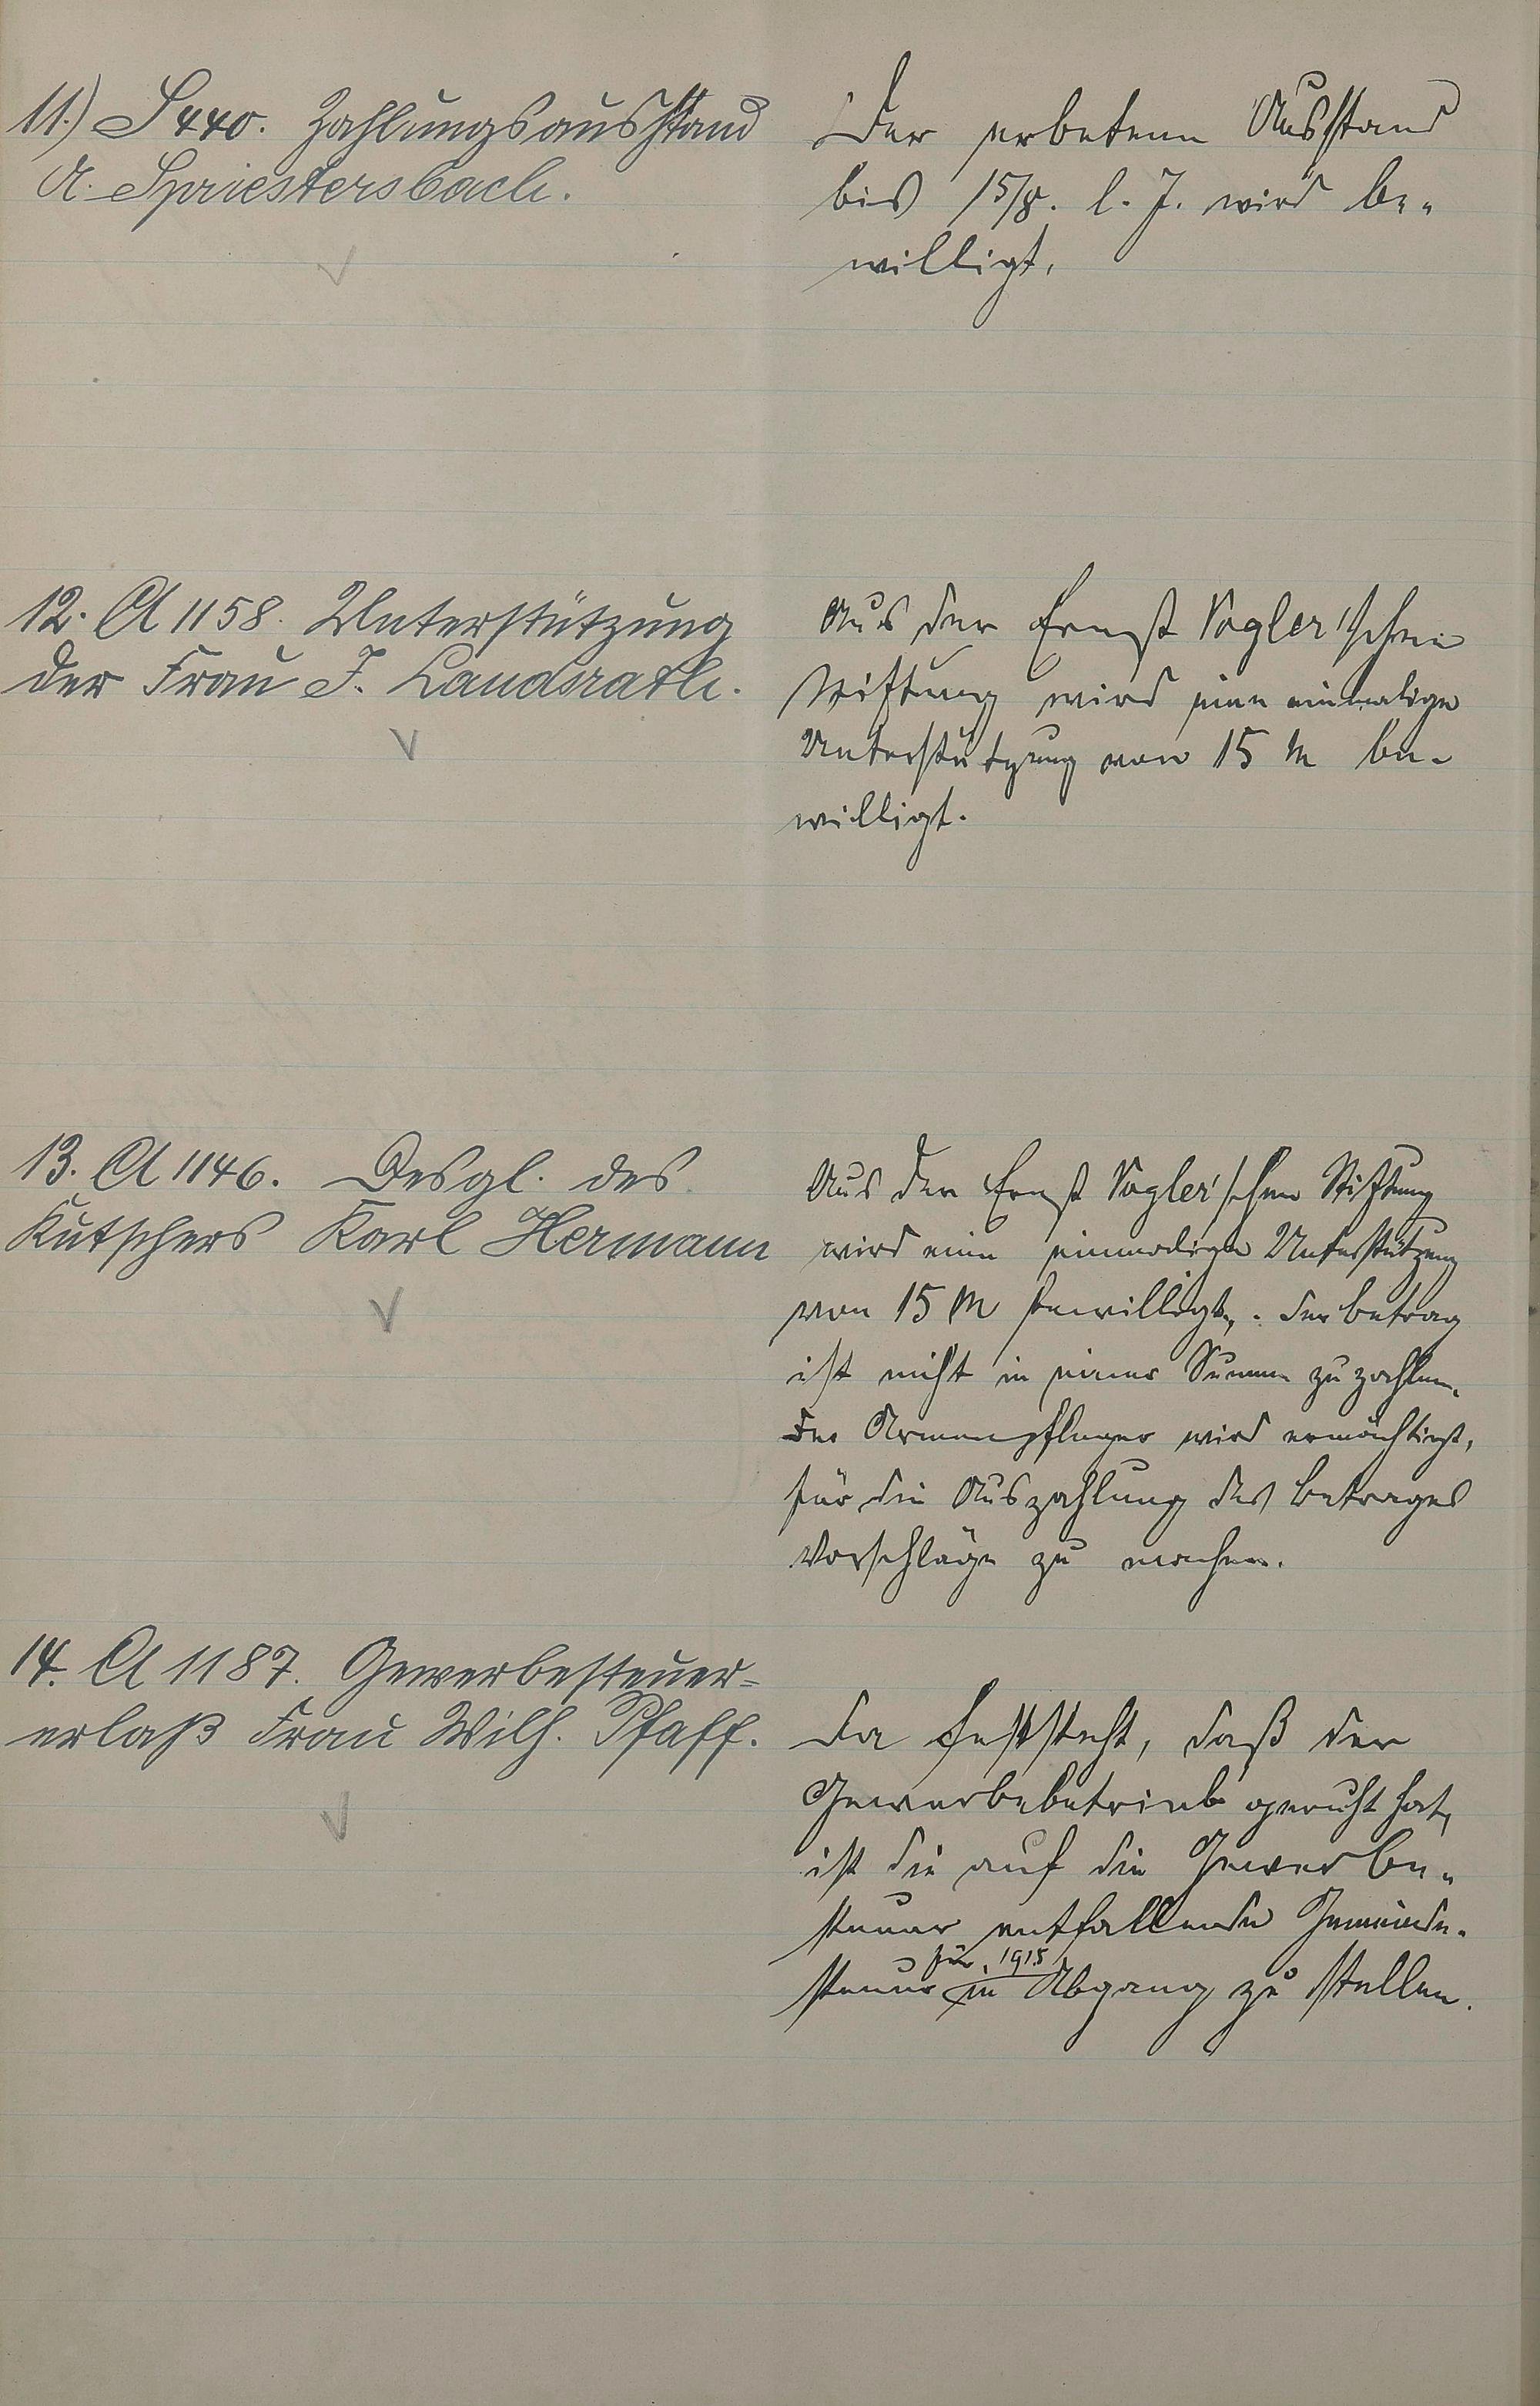 11.) S 440. Zahlungsausstand
A. Spriestersbach.
Der erbetene Ausstand
bis 15/8. l. J. wird be-
willigt.
12. A 1158. Unterstützung
der Frau J. Landsrath.
Aus der Ernst Vogler'schen
Stiftung wird eine einmalige
Unterstützung von 15 M be-
willigt.
13. A 1146. Desgl. des
Kutschers Karl Hermann
Aus der Ernst Vogler'schen Stiftung
wird eine einmalige Unterstützung
von 15 M bewilligt. Der Betrag
ist nicht in einer Summe zu zahlen.
Der Armenpfleger wird ermächtigt,
für die Auszahlung des Betrages
Vorschläge zu machen.
14. A 1187. Gewerbesteuer=
erlaß Frau Wilh. Pfaff.
Da feststeht, daß der
Gewerbebetrieb geruht hat,
ist die auf die Gewerbe-
steuer entfallende Gemeinde-
für 1915
steuer in Abgang zu stellen.